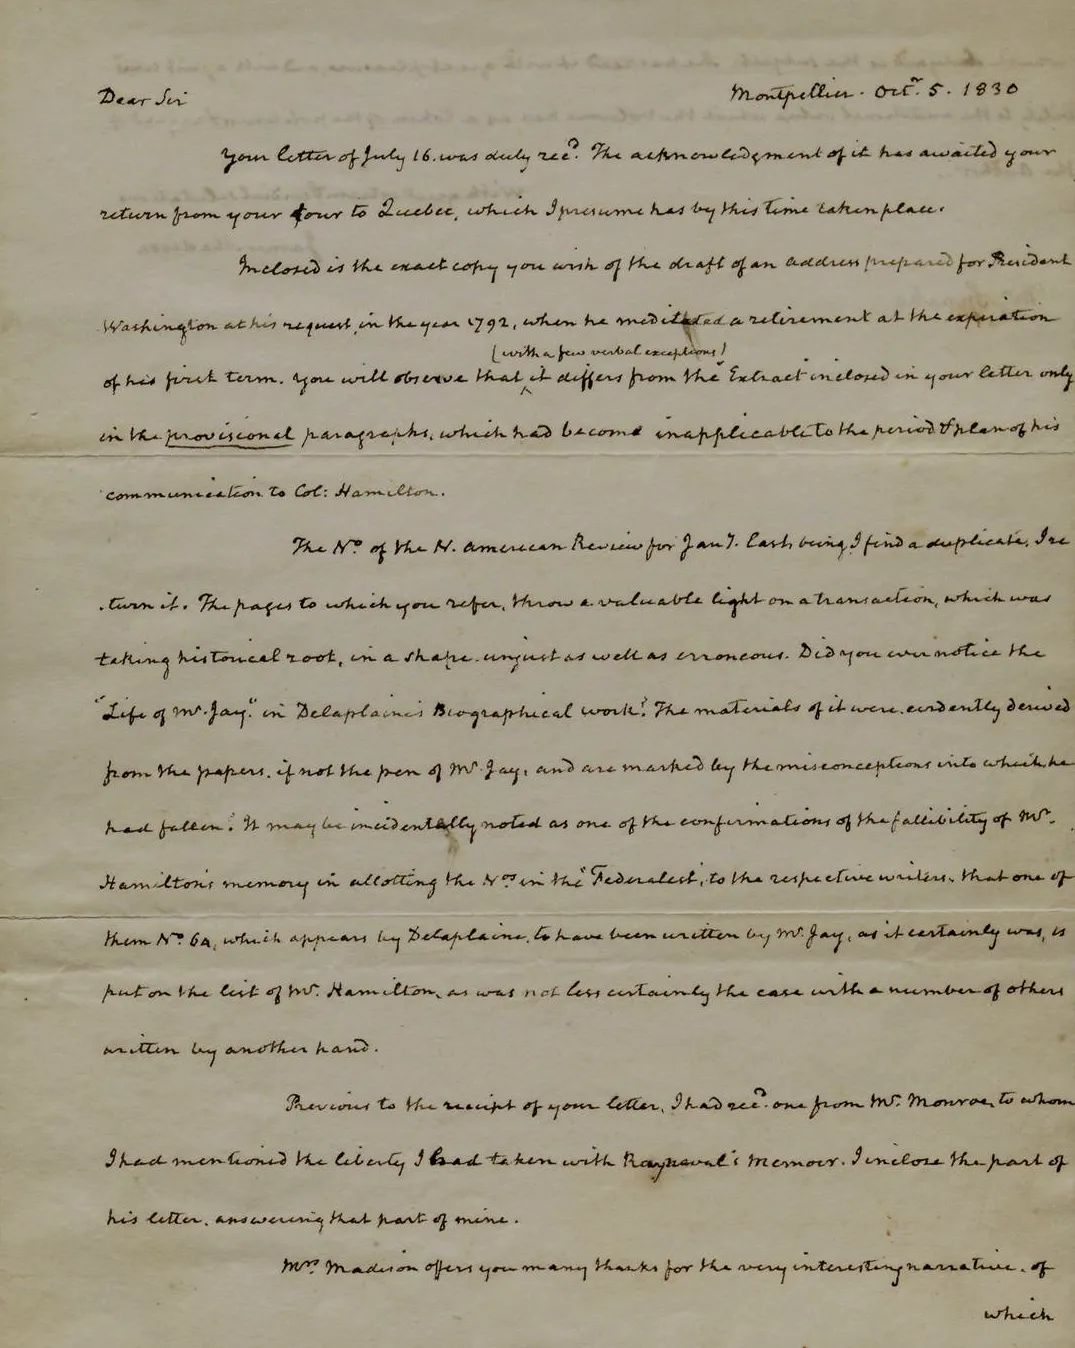 Dear Sir
Montpellier. Octr. 5. 1830
Your letter of July 16. was duly recd. The acknowledgment of it has awaited your
return from your tour to Quebec, which I presume has by this time taken place.
Inclosed is the exact copy you wish of the draft of an address prepared for President
Washington at his request, in the year 1792, when he meditated a retirement at the expiration
(with a few verbal exceptions)
of his first term. You will observe that it differs from the "Extract inclosed in your letter only
in the provisional paragraphs, which had become inapplicable to the period & plan of his
communication to Col: Hamilton.
The No. of the N. American Review for Jany. last, being, I find a duplicate, I re
turn it. The pages to which you refer, throw a valuable light on a transaction, which was
taking historical root, in a shape unjust as well as erroneous. Did you ever notice the
"Life of Mr. Jay" in Delaplaine's Biographical work? The materials of it were evidently derived
from the papers, if not the pen of Mr. Jay, and are marked by the misconceptions into which he
had fallen. It may be incidentally noted as one of the confirmations of the fallibility of Mr.
Hamilton's memory in allotting the Nos. in the "Federalist, to the respective writers, that one of
them No. 64, which appears by Delaplaine, to have been written by Mr. Jay, as it certainly was, is
put on the list of Mr. Hamilton, as was not less certainly the case with a number of others
written by another hand.
Previous to the receipt of your letter, I had recd. one from Mr. Monroe, to whom
I had mentioned the liberty I had taken with Rayneval's Memoir. I inclose the part of
his letter, answering that part of mine.
Mrs. Madison offers you many thanks for the very interesting narrative, of
which